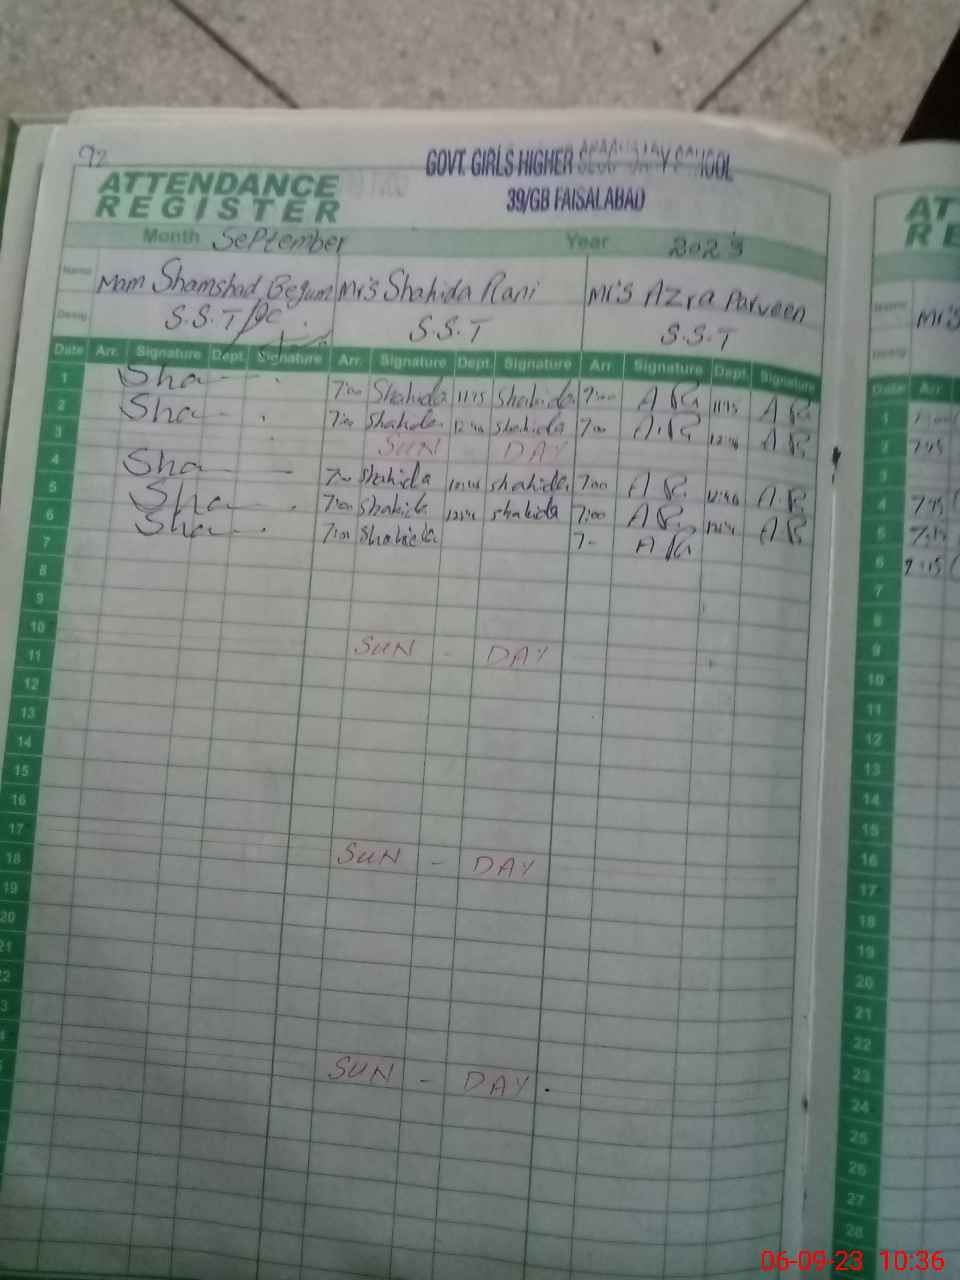 92
GOVT. GIRLS HIGHER SECONDARY SCHOOL
39/GB FAISALABAD
ATTENDANCE
REGISTER
Month September Year 2023
Name Mam Shamshad Begum Mrs Shahida Rani Mrs Azra Parveen
Desig S.S.T S.S.T S.S.T
Date Arr. Signature Dept. Signature Arr. Signature Dept. Signature Arr Signature Dept. Signature
1 Sha 7:00 Shahida 11:15 Shahida 7:00 A R 11:15 A R
2 Sha 7:00 Shahida Shahida 7:00 A.R A R
3 SUN DAY
4 Sha 7:00 Shahida Shahida 7:00 A R A R
5 Sha 7:00 Shahida Shahida 7:00 A R A R
6 Sha 7:00 Shahida 7- A R
7
8
9
10 SUN - DAY
11
12
13
14
15
16
17 SUN - DAY
18
19
20
21
SUN - DAY.
AT
RE
Mrs
Date Arr
1
2 7:45
3
4 7:45
5
6 7:15
7
8
9
10
11
12
13
14
15
16
17
18
19
20
21
22
23
24
25
26
27
28
06-09-23 10:36